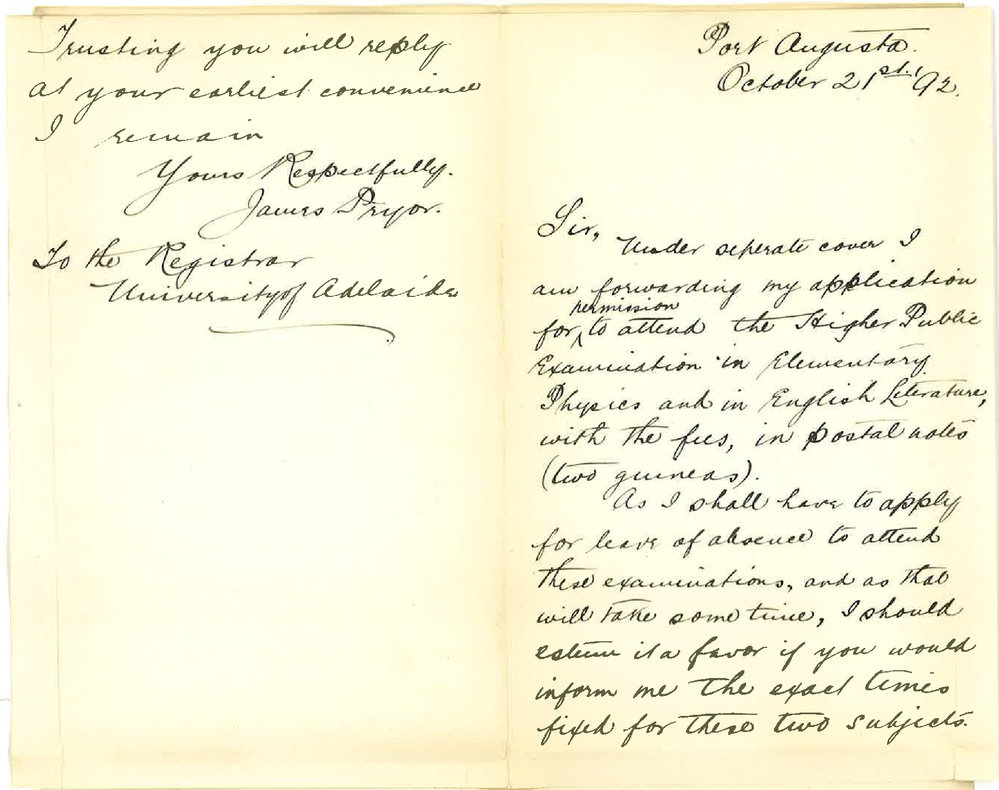 Port Augusta.
October 21st. /92.
Sir,
Under seperate cover I
am forwarding my application
permission
for ^ to attend the Higher Public
Examination in Elementary
Physics and in English Literature,
with the fees, in postal notes
(two guineas).
As I shall have to apply
for leave of absence to attend
these examinations, and as that
will take some time, I should
esteem it a favor if you would
inform me the exact times
fixed for these two subjects.
Trusting you will reply
at your earliest convenience
I remain
Yours Respectfully.
James Pryor.
To the Registrar
University of Adelaide